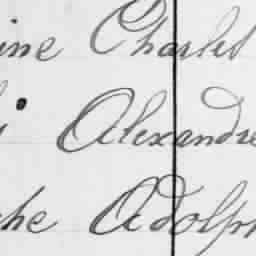 ine Charles
i Alexandre
che Adolph